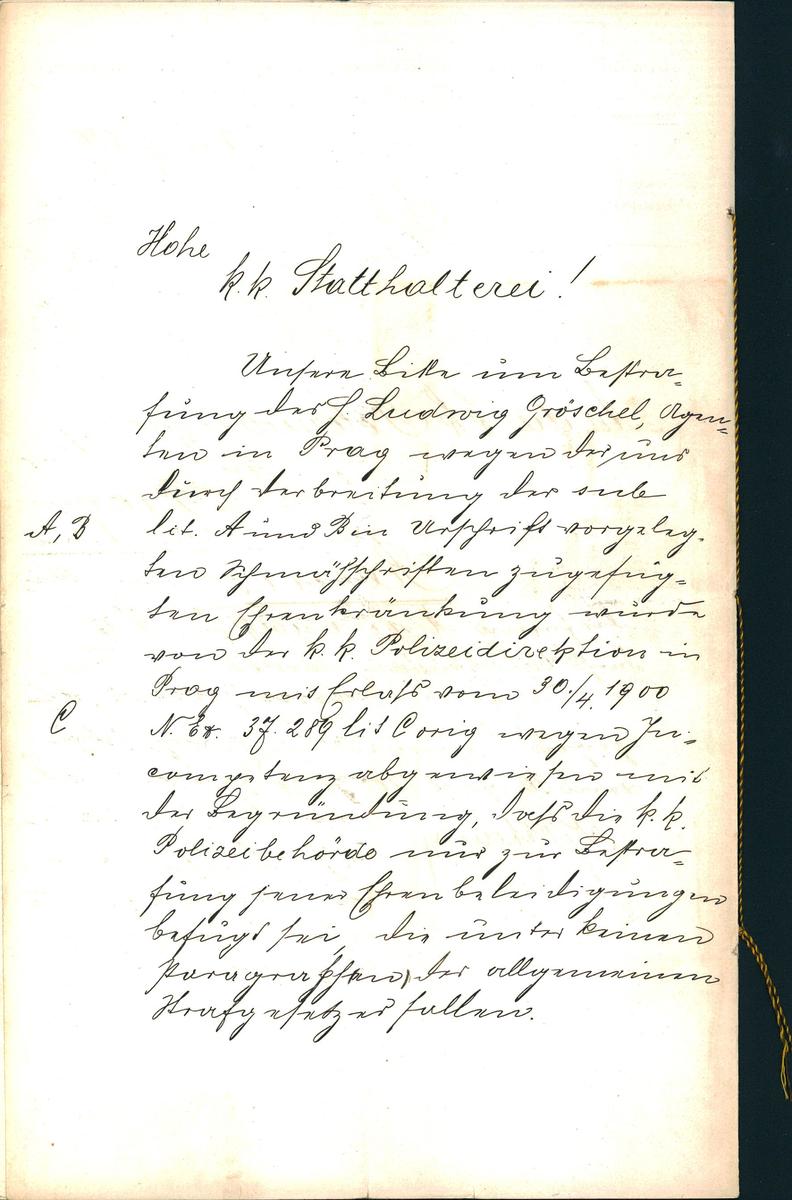 Hohe
k. k. Statthalterei!
Unsere Bitte um Bestra-
fung des H. Ludwig Gröschel, Agen-
ten in Prag wegen der uns
durch Verbreitung der sub
A, B lit. A und B in Urschrift vorgeleg-
ten Schmähschriften zugefüg-
ten Ehrenkränkung wurde
von der k. k. Polizeidirektion in
Prag mit Erlaß vom 30./4. 1900
C N. Ex. 37.289 lit C orig wegen In-
competenz abgewiesen mit
der Begründung, daß die k. k.
Polizeibehörde nur zur Bestra-
fung jener Ehrenbeleidigungen
befugt sei, die unter keinen
Paragraphen der allgemeinen
Strafgesetzes fallen.